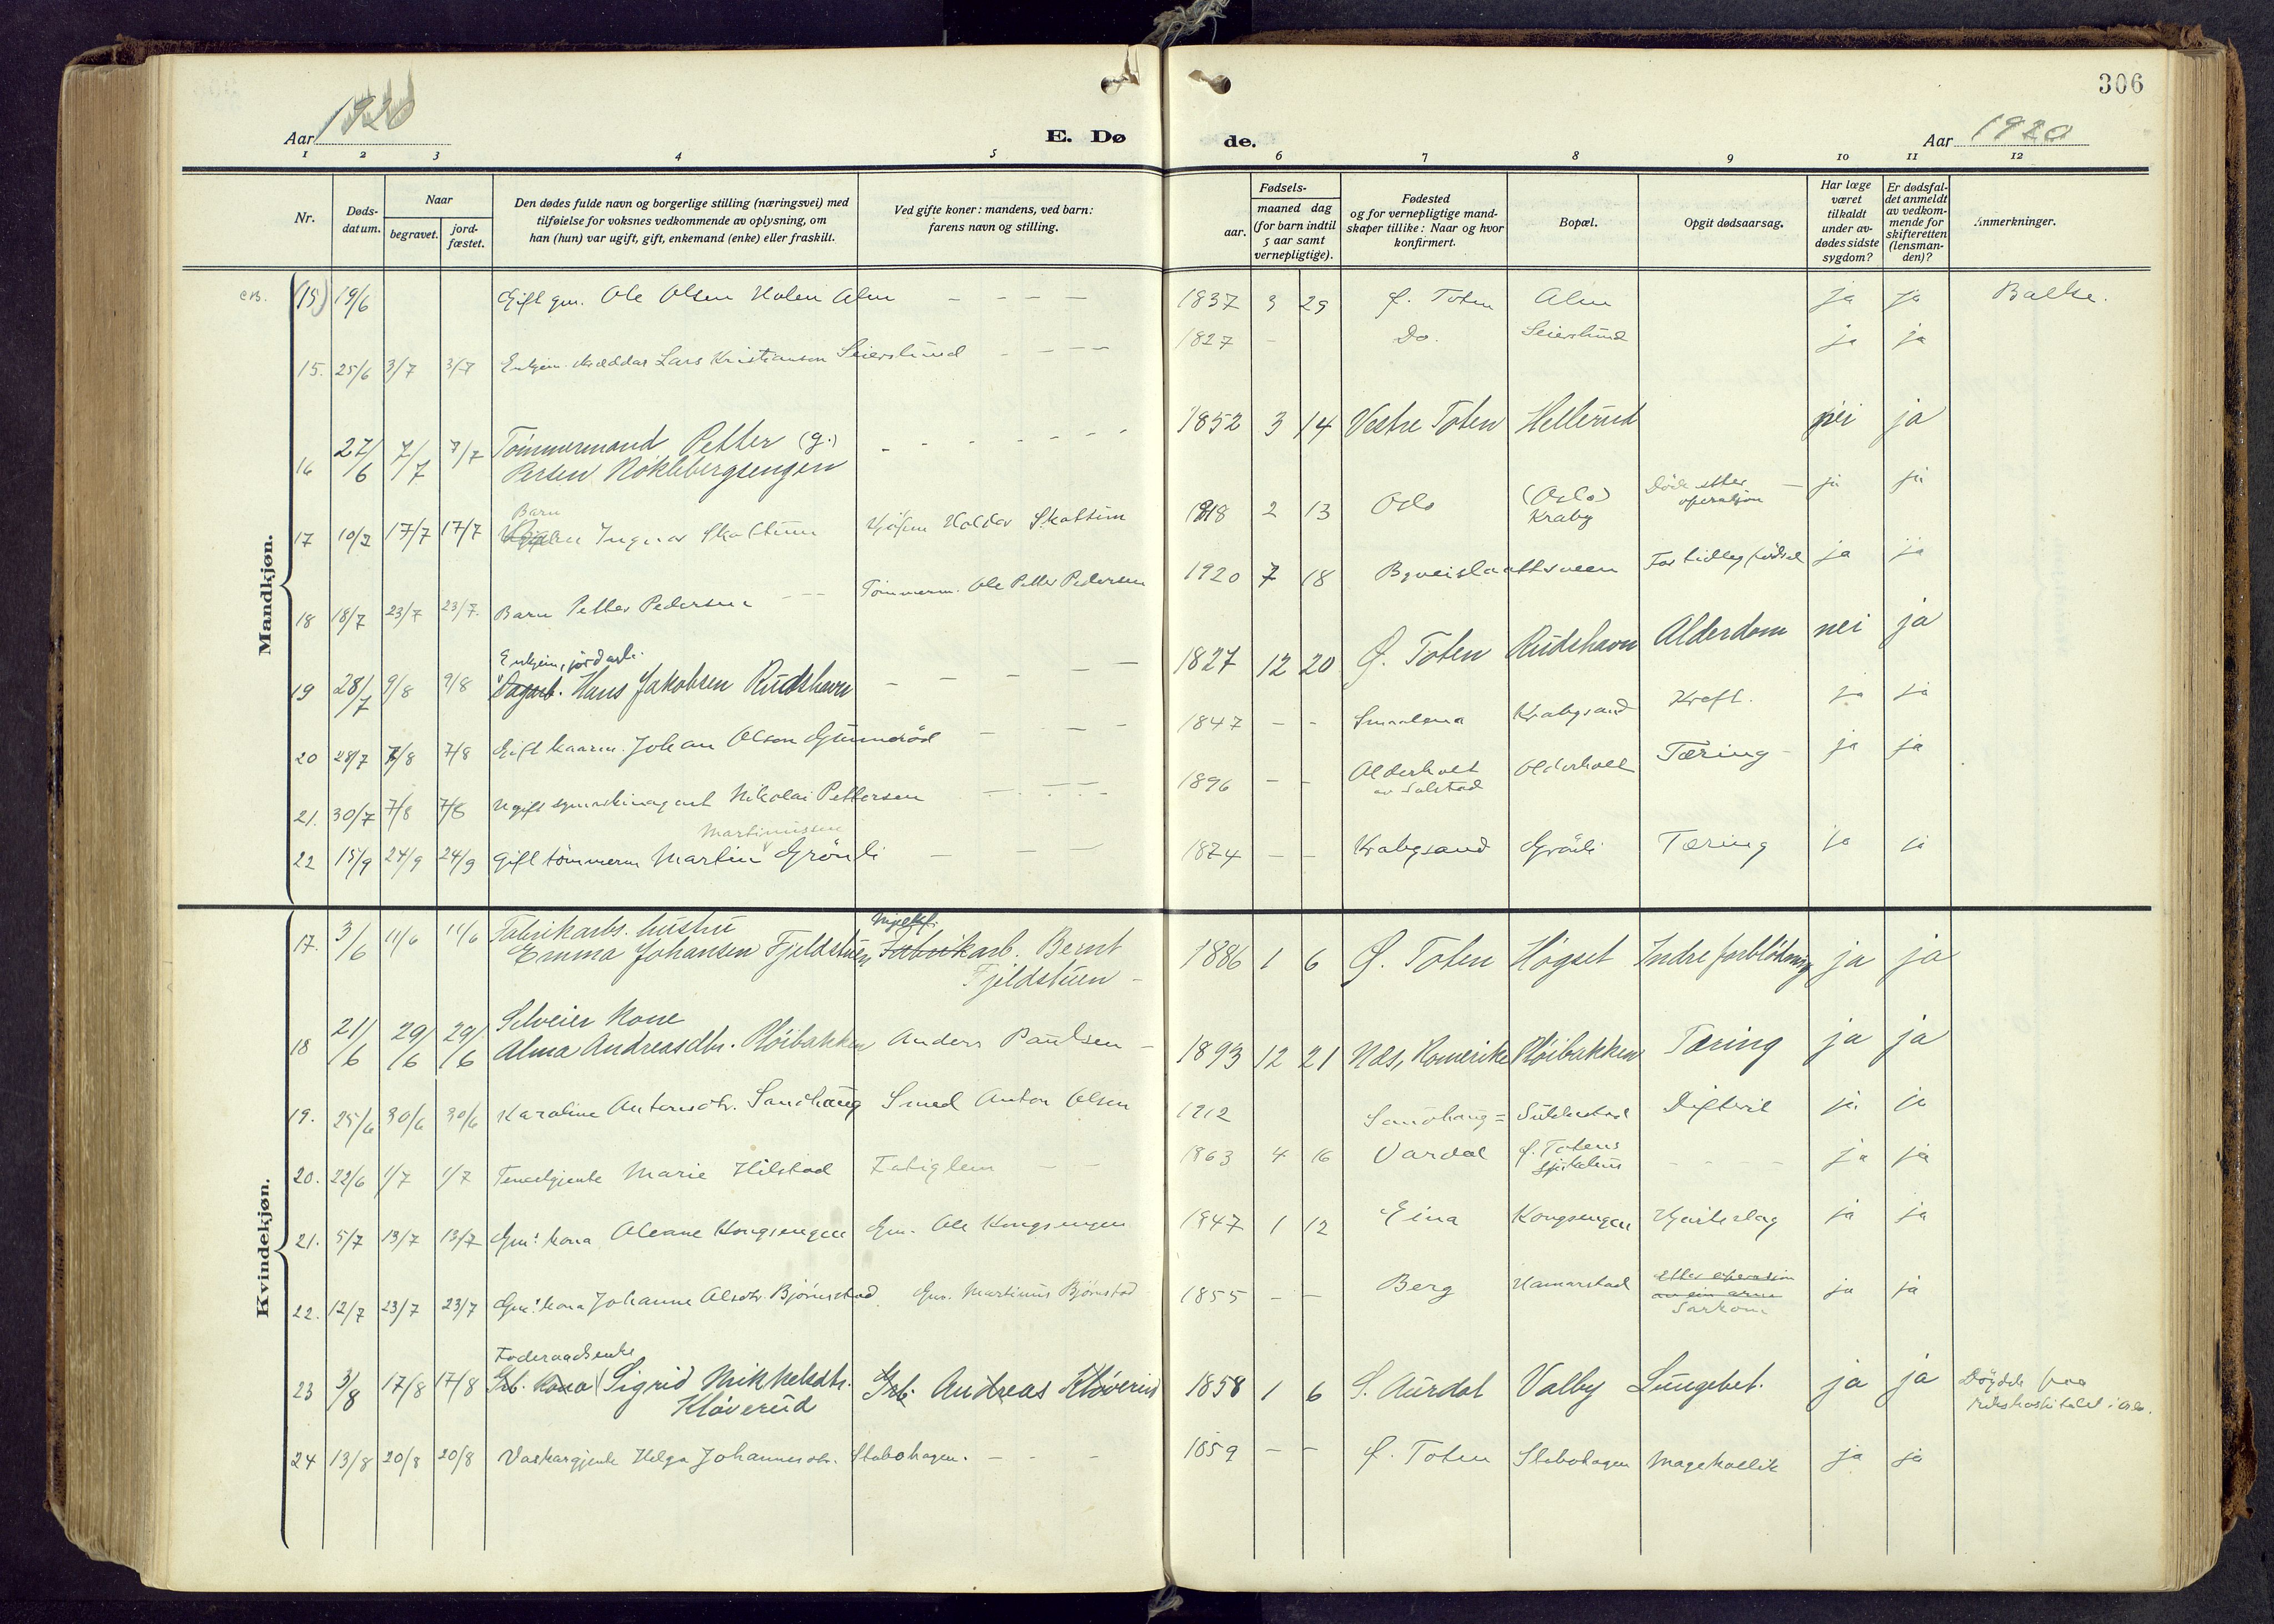 306
Aar 1920
E. Dø
de.
Aar 1920
1 2 3 4 5 6 7 8 9 10 11 12
Nr.
Døds-
datum.
Naar
begravet.
jord-
fæstet.
Den dødes fulde navn og borgerlige stilling (næringsvei) med
tilføielse for voksnes vedkommende av oplysning, om
han (hun) var ugift, gift, enkemand (enke) eller fraskilt.
Ved gifte koner: mandens, ved barn:
farens navn og stilling.
Fødsels-
aar.
maaned dag
(for barn indtil
5 aar samt
vernepligtige).
Fødested
og for vernepligtige mand-
skaper tillike: Naar og hvor
konfirmert.
Bopæl.
Opgit dødsaarsag.
Har læge
været
tilkaldt
under av-
dødes sidste
sygdom?
Er dødsfal-
det anmeldt
av vedkom-
mende for
skifteretten
(lensman-
den)?
Anmerkninger.
Mandkjøn.
(15) 19/6 Gift gm. Ole Olsen Holen Alm — — — — 1837 3 29 Ø. Toten Alm ja ja Balke.
15. 25/6 3/7 3/7 Enkjem. skræddar Lars Kristianson Seierslund — — — — 1827 — Do. Seierslund ja ja
16 27/6 7/7 7/7 Tömmermand Petter (g.)
Persen Nöklebergsengen 1852 3 14 Vestre Toten Hellerud nei ja
Barn
17 10/7 17/7 17/7 Ingvar Skattum Halvdor Skattum 1918 2 13 Oslo (Oslo)
Kraby Död etter
operasjon — ja ja
18 18/7 23/7 23/7. Barn Petter Pedersen — — — Tömmerm. Ole Petter Pedersen 1920 7 18 For tidleg födsel ja ja
Enkjem, jordarb.
19 28/7 9/8 9/8 Dagarb. Hans Jakobsen Rudshavn — — — — — 1827 12 20 Ø. Toten Rudshavn Alderdom nei ja
20 28/7 7/8 7/8 Gift Johan Olson — — — 1847 — — Smaalena Krabysand Kreft. ja ja
21. 30/7 7/8 7/8 Ugift symaskinagent Nikolai Pettersen — — — — 1896 — — Alderholt
av Sølstad Olderholt Tæring — ja ja
Martinussen
22 15/9 24/9 24/9 Gift tömmerm Martin Grönli — — — 1874 — — Krabysand Grönli Tæring ja ja
Kvindekjøn.
17. 3/6 11/6 11/6 Fabrikarbs. hustru
Emma Johansen Fjeldstuen Fabrikarb. Bernt
Fjeldstuen — 1886 1 6 Ø. Toten Högset Indre forblödning ja ja
18 21/6 29/6 29/6 Selveier Kone
Alma Andreasdtr. Plöibakken Anders Paulsen — 1893 12 21 Nes, Romerike Plöibakken Tæring ja ja
19. 25/6 30/6 30/6 Karoline Antonsdtr. Sandhaug Smed Anton Olsen 1912 Sandhaug = Sulilustad Difteri ja ja
20. 22/6 1/7 1/7 Tenestgjente Marie Hilstad Fatiglem — — 1863 4 16 Vardal Ø. Totens
sjukehus — — — — ja ja
21. 5/7 13/7 13/7 Gm's kona Oleane Kongsengen Gm. Ole Kongsengen 1847 1 12 Eina Kongsengen Hjarteslag ja ja
22. 12/7 23/7 23/7 Gm's kona Johanne Olsdtr. Björnstad. Gm. Martinus Björnstad 1855 — — Berg Hamarstad Etter operasjon
av ein arm
Sarkom ja ja
Foderaadsenke
23 3/8 17/8 17/8 Grb. kona Sigrid Mikkelsdtr.
Klöverud Grb. Andreas Klöverud 1858 1 6 S. Aurdal Valby Lungebet. ja ja Döydde paa
rikshospitalet i Oslo.
24 13/8 20/8 20/8 Vaskargjente Helga Johannesdtr. Stabohagen. — — — 1859 — — Ø. Toten Stabohagen Magekollik ja ja